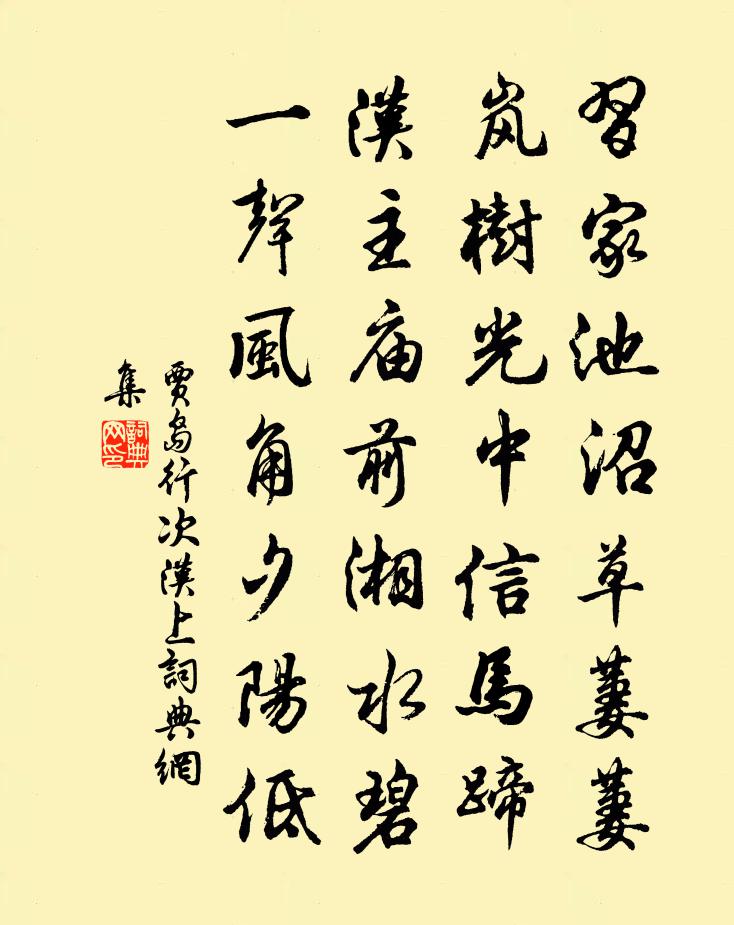 習家池沼草萋萋
岚樹光中信馬蹄
漢主庙前湘水碧
一聲風角夕陽低
賈島行次漢上詞典網
集
詞典
网印